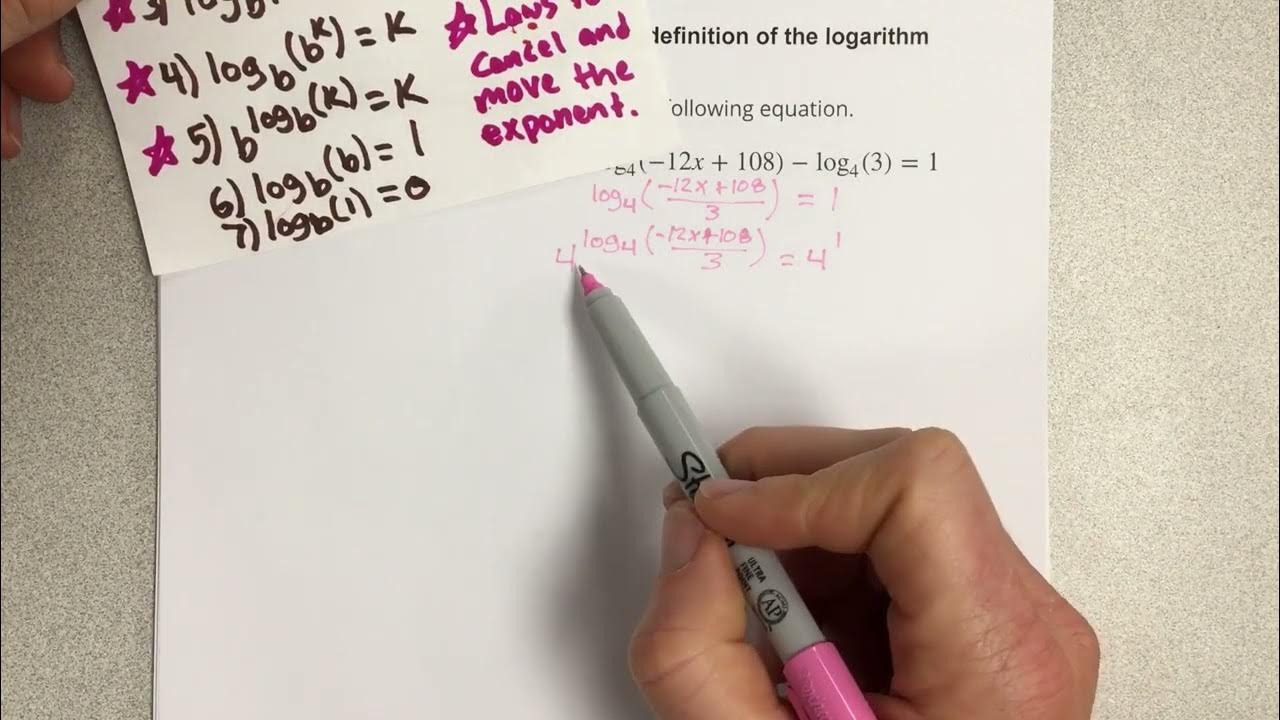 3) log
4) log_b(b^K) = K
5) b^log_b(K) = K
6) log_b(b) = 1
7) log_b(1) = 0
Laws to
cancel and
move the
exponent.
definition of the logarithm
following equation.
log₄(−12x + 108) − log₄(3) = 1
log₄(-12x+108/3) = 1
4^log₄(-12x+108/3) = 4^1
ULTRA
FINE
AP